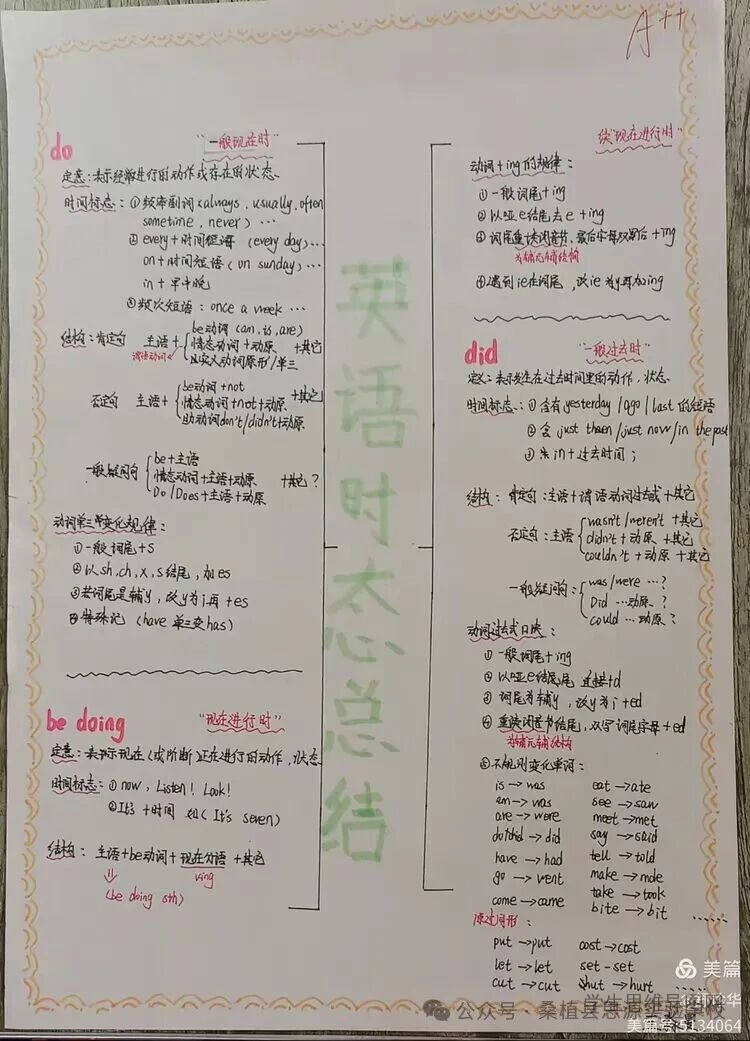 A++
英语时态总结
do
"一般现在时"
定意:表示经常进行的动作或存在的状态.
时间标志:①频率副词<always, usually, often
sometime, never) …
②every+时间短语 (every day)…
on+时间短语 (on sunday)…
in+早中晚
③频次短语: once a week …
结构:肯定句 主语+
be动词 (am, is, are)
情态动词+动原
实义动词原形/单三
+其它
谓语动词
否定句 主语+
be动词+not
情态动词+not+动原
助动词don't/didn't+动原
+其它
一般疑问句
be+主语
情态动词+主语+动原
Do/Does+主语+动原
+其它?
动词单三变化规律:
①一般词尾+s
②以sh,ch,x,s结尾,加es
③若词尾是辅y,改y为i再+es
④特殊记 (have 单三变has)
be doing
"现在进行时"
定意:表示现在(或阶断)正在进行的动作,状态
时间标志:①now, Listen! Look!
②It's+时间 如(It's seven)
结构: 主语+be动词+现在分语+其它
ving
(be doing sth)
续"现在进行时"
动词+ing的规律:
①一般词尾+ing
②以哑e结尾去e+ing
③词尾重读闭音节,最后字母双写后+ing
为辅元辅结构
④遇到ie在词尾,改ie为y再加ing
did
"一般过去时"
定义:表示发生在过去时间里的动作,状态.
时间标志:①含有yesterday/ago/last的短语
②含 just thaen/just now/in the past
③ in+过去时间;
结构: 肯定句:主语+谓语动词过去式+其它
否定句:主语
wasn't/weren't+其它
didn't+动原+其它
couldn't+动原+其它
一般疑问句:
was/were …?
Did …动原?
could …动原?
动词过去式口决:
①一般词尾+ing
②以哑e结尾 直接+d
③词尾为辅y,改y为i+ed
④重读闭音节结尾,双写词尾字母+ed
为辅元辅结构
⑤不规则变化单词:
is→was eat→ate
am→was see→saw
are→were meet→met
do→did say→said
have→had tell→told
go→went make→mde
come→came take→took
bite→bit ……
原过同形:
put→put cost→cost
let→let set-set
cut→cut hurt ……
美篇
公众号·桑植县思源实验学校
美篇号:5134064